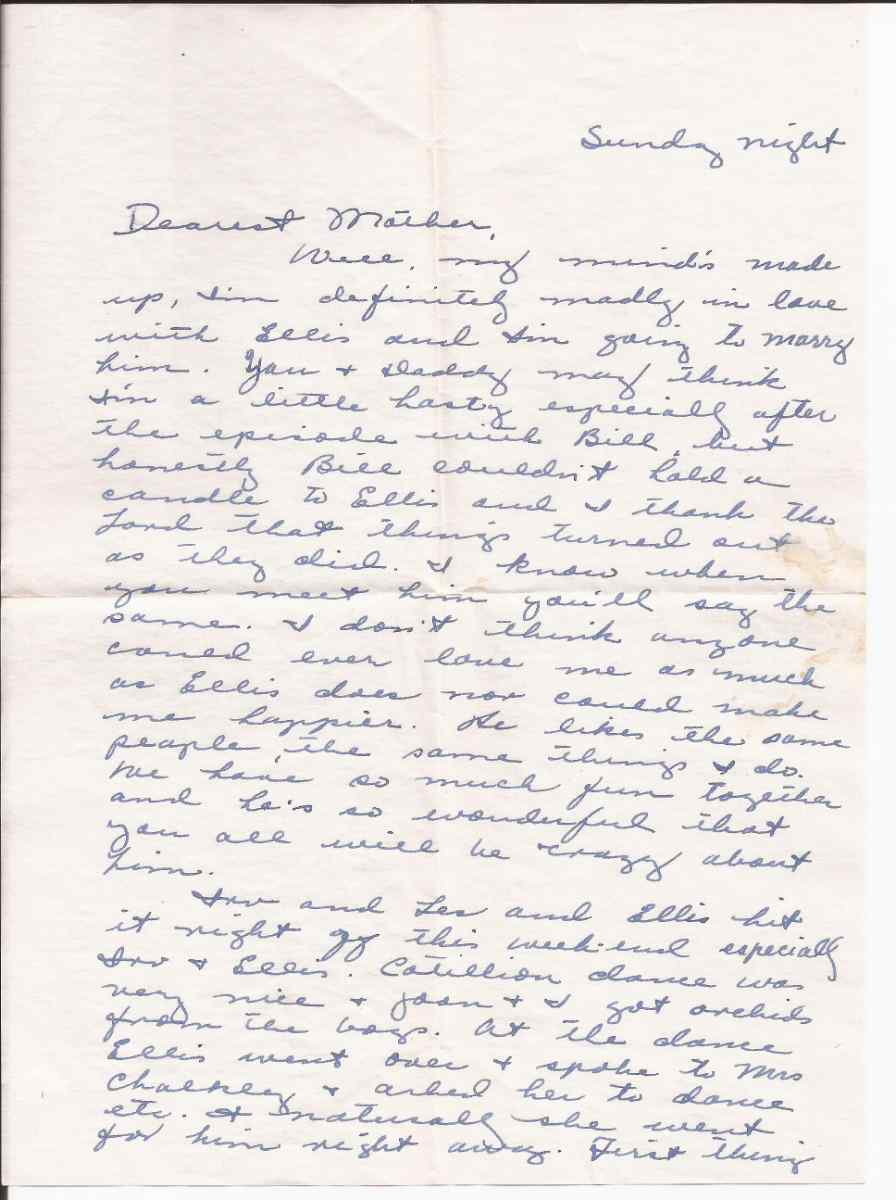 Sunday night
Dearest Mother,
Well, my mind's made
up, I'm definitely madly in love
with Ellis and I'm going to marry
him. You + Daddy may think
I'm a little hasty especially after
the episode with Bill, but
honestly Bill couldn't hold a
candle to Ellis and I thank the
Lord that things turned out
as they did. I know when
you meet him you'll say the
same. I don't think anyone
could ever love me as much
as Ellis does nor could make
me happier. He likes the same
people, the same things I do.
We have so much fun together
and he's so wonderful that
you all will be crazy about
him.
Irv and Les and Ellis hit
it right off this week-end especially
Irv + Ellis. Cotillion dance was
very nice + Joan + I got orchids
from the boys. At the dance
Ellis went over + spoke to Mrs
Chalkley + asked her to dance
etc. + naturally she went
for him right away. First thing